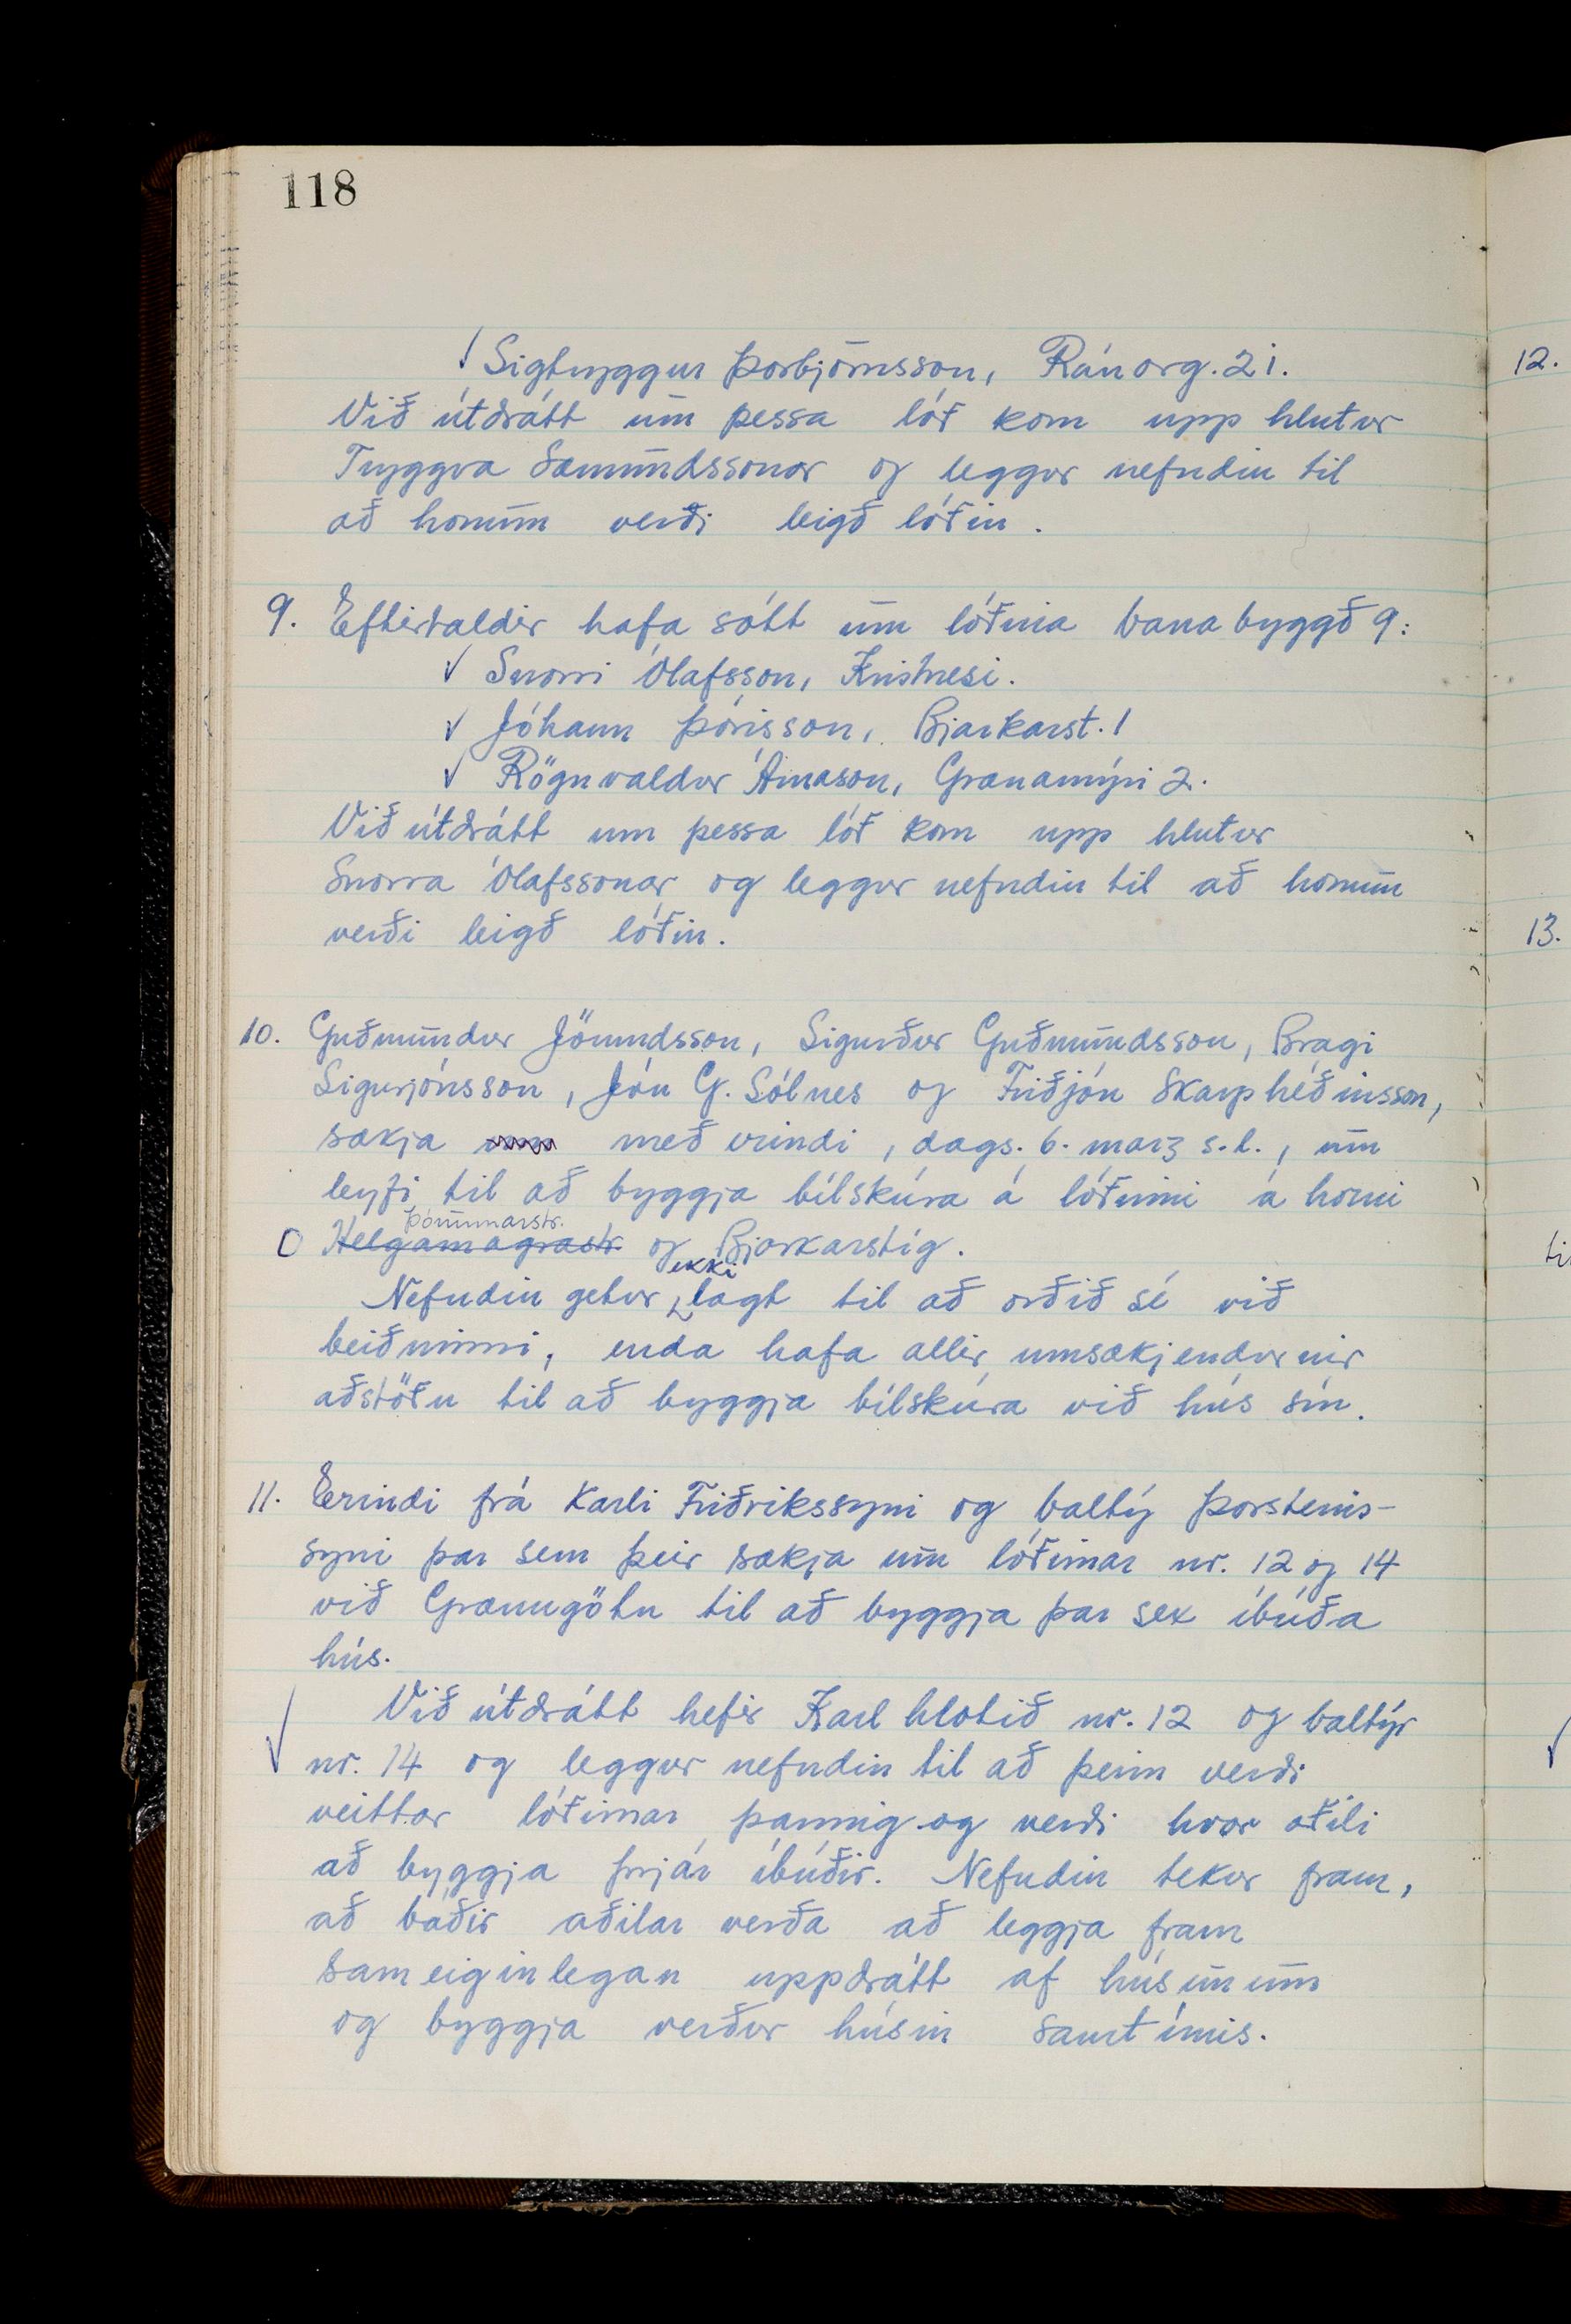 118
✓ Sigtryggur Þorbjörnsson, Ránarg. 21.
Við útdrátt um þessa lóð kom upp hlutur
Tryggva Sæmundssonar og leggur nefndin til
að honum verði leigð lóðin.
9. Eftirtaldir hafa sótt um lóðina Vanabyggð 9:
✓ Snorri Ólafsson, Kristnesi.
✓ Jóhann Þórisson, Bjarkarst. 1
✓ Rögnvaldur Árnason, Grænamýri 2.
Við útdrátt um þessa lóð kom upp hlutur
Snorra Ólafssonar og leggur nefndin til að honum
verði leigð lóðin.
10. Guðmundur Jörundsson, Sigurður Guðmundsson, Bragi
Sigurjónsson, Jón G. Sólnes og Friðjón Skarphéðinsson,
sækja með erindi, dags. 6. marz s.l., um
leyfi til að byggja bílskúra á lóðinni á horni
Þórunnarstr.
O Helgamagrastr. og Bjarkarstíg.
ekki
Nefndin getur lagt til að orðið sé við
beiðninni, enda hafa allir umsækjendurnir
aðstöðu til að byggja bílskúra við hús sín.
11. Erindi frá Karli Friðrikssyni og Valtý Þorsteins-
syni þar sem þeir sækja um lóðirnar nr. 12 og 14
við Grænugötu til að byggja þar sex íbúða
hús.
Við útdrátt hefir Karl hlotið nr. 12 og Valtýr
✓ nr. 14 og leggur nefndin til að þeim verði
veittar lóðirnar þannig og verði hvor aðili
að byggja þrjár íbúðir. Nefndin tekur fram,
að báðir aðilar verða að leggja fram
sameiginlegan uppdrátt af húsunum
og byggja verður húsin samtímis.
12.
13.